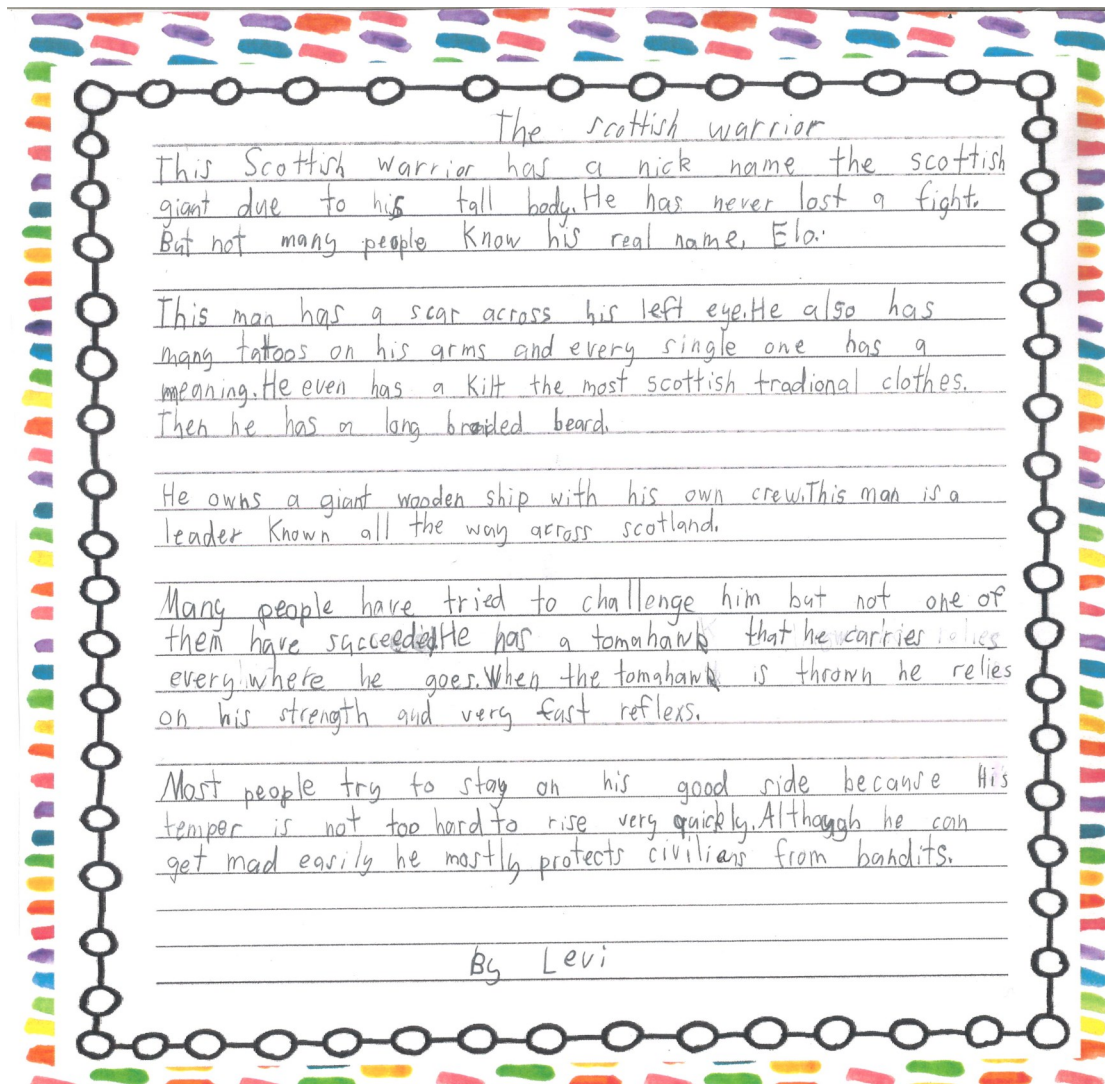 The scottish warrior
This Scottish warrior has a nick name the scottish
giant due to his tall body. He has never lost a fight.
But not many people Know his real name, Elo.
This man has a scar across his left eye. He also has
many tattoos on his arms and every single one has a
meaning. He even has a Kilt the most scottish tradional clothes.
Then he has a long braided beard.
He owns a giant wooden ship with his own crew. This man is a
leader Known all the way across scotland.
Many people have tried to challenge him but not one of
them have succeeded He has a tomahawk that he carries
every where he goes. When the tomahawk is thrown he relies
on his strength and very fast reflexs.
Most people try to stay on his good side because His
temper is not too hard to rise very quickly. Although he can
get mad easily he mostly protects civilians from bandits.
By Levi